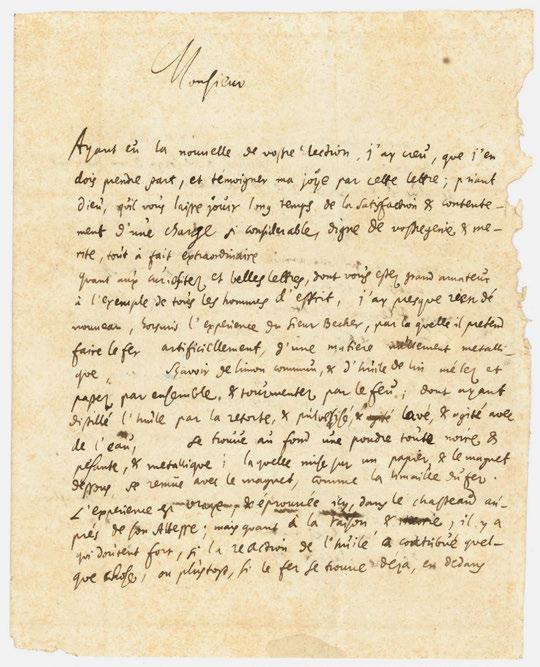 Monsieur
Ayant eu la nouvelle de vostre election, j'ay creu, que j'en
dois prendre part, et temoigner ma joÿe par cette lettre; priant
Dieu, qu'il vous laisse jouir long temps de la satisfaction & contente-
ment d'une charge si considerable, digne de vostre genie & me-
rite, tout à fait extraordinaire
Quant aux curiositez et belles lettres, dont vous estez grand amateur
à l'exemple de tous les hommes d'esprit, j'ay presque rien de
nouveau, horsmis l'experience du Sieur Becher, par la quelle il pretend
faire le fer artificiellement, d'une matiere nullement metalli-
que, Sçavoir de limon commun, & d'huile de lin mélez et
par ensemble, & tourmentez par le feu; dont ayant
distillé l'huile par la retorte, & pulverisé, & lavé, & agité avec
de l'eau, se trouve au fond une poudre toute noire, &
pesante, & metallique; laquelle mise sur un papier, & le magnet
dessous, se remue avec le magnet, comme la limaille du fer.
L'experience est vraye & eprouvée icy, dans le chasteau au-
prés de son Altesse; mais quant à la raison & , il y a
qui doutent fort, si la reaction de l'huile a contribué quel-
que chose, ou plustost, si le fer se trouve deja, en dedans